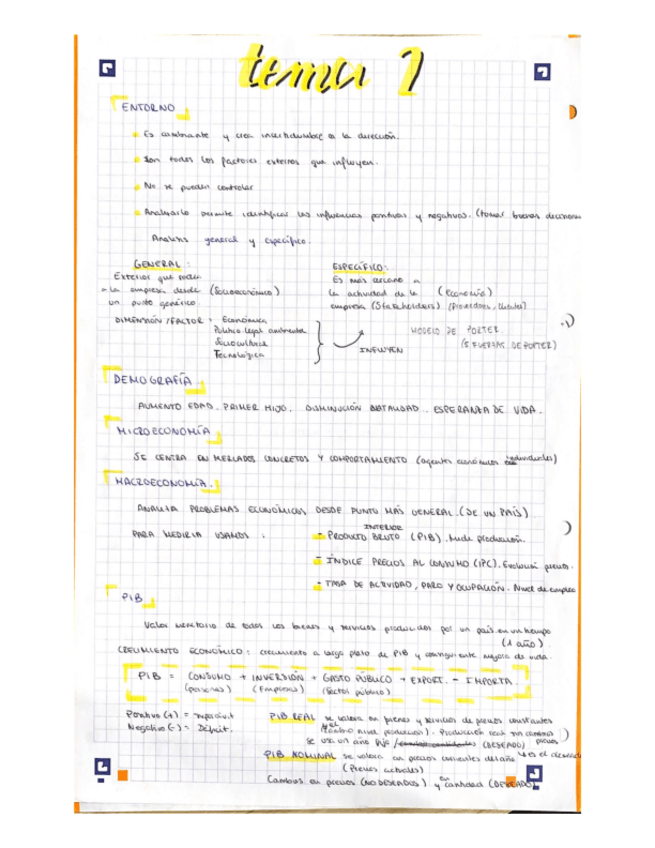 tema 1
ENTORNO
Es cambiante y crea incertidumbre en la dirección.
Son todos los factores externos que influyen.
No se pueden controlar
Analizarlo permite identificar las influencias positivas y negativas. (tomar buenas decisiones
Análisis general y específico.
GENERAL :
Exterior que rodea
a la empresa desde (Socioeconómico)
un punto genérico.
DIMENSIÓN / FACTOR : Económica
Político legal ambiental
Sociocultural
Tecnológica
INFLUYEN
ESPECÍFICO:
Es más cercano a
la actividad de la (economía)
empresa (Stakeholders) (Proveedores, clientes)
MODELO DE PORTER
(5 FUERZAS DE PORTER)
DEMOGRAFÍA
AUMENTO EDAD PRIMER HIJO. DISMINUCIÓN NATALIDAD. ESPERANZA DE VIDA.
MICROECONOMÍA
SE CENTRA EN MERCADOS CONCRETOS Y COMPORTAMIENTO (agentes económicos individuales)
MACROECONOMÍA.
ANALIZA PROBLEMAS ECONÓMICOS DESDE PUNTO MÁS GENERAL. (DE UN PAÍS)
PARA MEDIRLA USAMOS :
- PRODUCTO INTERIOR BRUTO (PIB). Mide producción.
- ÍNDICE PRECIOS AL CONSUMO (IPC). Evolución precios.
- TASA DE ACTIVIDAD, PARO Y OCUPACIÓN. Nivel de empleo
PIB
Valor monetario de todos los bienes y servicios producidos por un país en un tiempo
(1 año)
CRECIMIENTO ECONÓMICO: crecimiento a largo plazo de PIB y consiguiente mejora de vida.
PIB = CONSUMO + INVERSIÓN + GASTO PÚBLICO + EXPORT. - IMPORTA.
(personas) (Empresas) (Sector público)
Positivo (+) = Superávit
Negativo (-) = Déficit.
PIB REAL se valora en bienes y servicios de precios constantes
nivel producción). Producción real sin cambios
se usa un año fijo (DESEADO) precios
PIB NOMINAL se valora en precios corrientes del año es el deseado
(Precios actuales)
Cambios en precios (NO DESEADOS) y en cantidad (DESEADO)